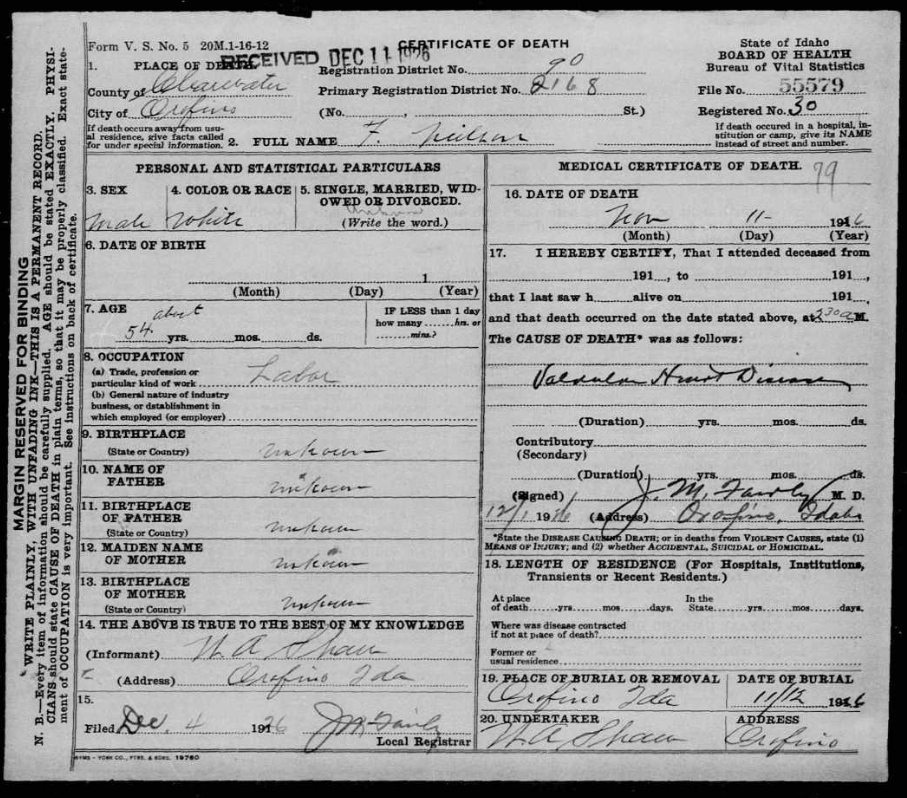 Form V. S. No. 5 20M.1-16-12
RECEIVED DEC 11 1926
CERTIFICATE OF DEATH
State of Idaho
BOARD OF HEALTH
Bureau of Vital Statistics
1. PLACE OF DEATH
County of Clearwater
City of Orofino
If death occurs away from usu-
al residence, give facts called
for under special information.
Registration District No. 90
Primary Registration District No. 2168
(No. , St.)
File No. 55579
Registered No. 30
If death occured in a hospital, in-
stitution or camp, give its NAME
instead of street and number.
2. FULL NAME F. Neilson
PERSONAL AND STATISTICAL PARTICULARS
3. SEX
male
4. COLOR OR RACE
White
5. SINGLE, MARRIED, WID-
OWED OR DIVORCED.
Unknown
(Write the word.)
6. DATE OF BIRTH
1
(Month) (Day) (Year)
7. AGE
about
54 yrs. mos. ds.
IF LESS than 1 day
how many hrs. or
mins.?
8. OCCUPATION
(a) Trade, profession or
particular kind of work Labor
(b) General nature of industry
business, or dstablishment in
which employed (or employer)
9. BIRTHPLACE
(State or Country) unkown
10. NAME OF
FATHER unkown
11. BIRTHPLACE
OF FATHER
(State or Country) unkown
12. MAIDEN NAME
OF MOTHER unkown
13. BIRTHPLACE
OF MOTHER
(State or Country) unkown
14. THE ABOVE IS TRUE TO THE BEST OF MY KNOWLEDGE
(Informant) W. A Shaw
(Address) Orofino Ida
15.
Filed Dec 4 1926 J M Fairly
Local Registrar
MEDICAL CERTIFICATE OF DEATH.
99
16. DATE OF DEATH
Nov 11- 1926
(Month) (Day) (Year)
17. I HEREBY CERTIFY, That I attended deceased from
191 , to 191 ,
that I last saw h alive on 191 ,
and that death occurred on the date stated above, at 2 30 a M.
The CAUSE OF DEATH* was as follows:
Valvular Heart Disease
(Duration) yrs. mos. ds.
Contributory
(Secondary)
(Duration) yrs. mos. ds.
(Signed) J. M. Fairly M. D.
12/1 1926 (Address) Orofino, Idaho
*State the DISEASE CAUSING DEATH; or in deaths from VIOLENT CAUSES, state (1)
MEANS OF INJURY; and (2) whether ACCIDENTAL, SUICIDAL or HOMICIDAL.
18. LENGTH OF RESIDENCE (For Hospitals, Institutions,
Transients or Recent Residents.)
At place
of death yrs. mos. days.
In the
State yrs. mos. days.
Where was disease contracted
if not at place of death?
Former or
usual residence
19. PLACE OF BURIAL OR REMOVAL
Orofino Ida
DATE OF BURIAL
11/12 1926
20. UNDERTAKER
W. A. Shaw
ADDRESS
Orofino
MARGIN RESERVED FOR BINDING
WRITE PLAINLY, WITH UNFADING INK—THIS IS A PERMANENT RECORD.
N. B.—Every item of information should be carefully supplied. AGE should be stated EXACTLY. PHYSI-
CIANS should state CAUSE OF DEATH in plain terms, so that it may be properly classified. Exact state-
ment of OCCUPATION is very important. See instructions on back of certificate.
SYMS - YORK CO., PTRS. & BDRS. 19760